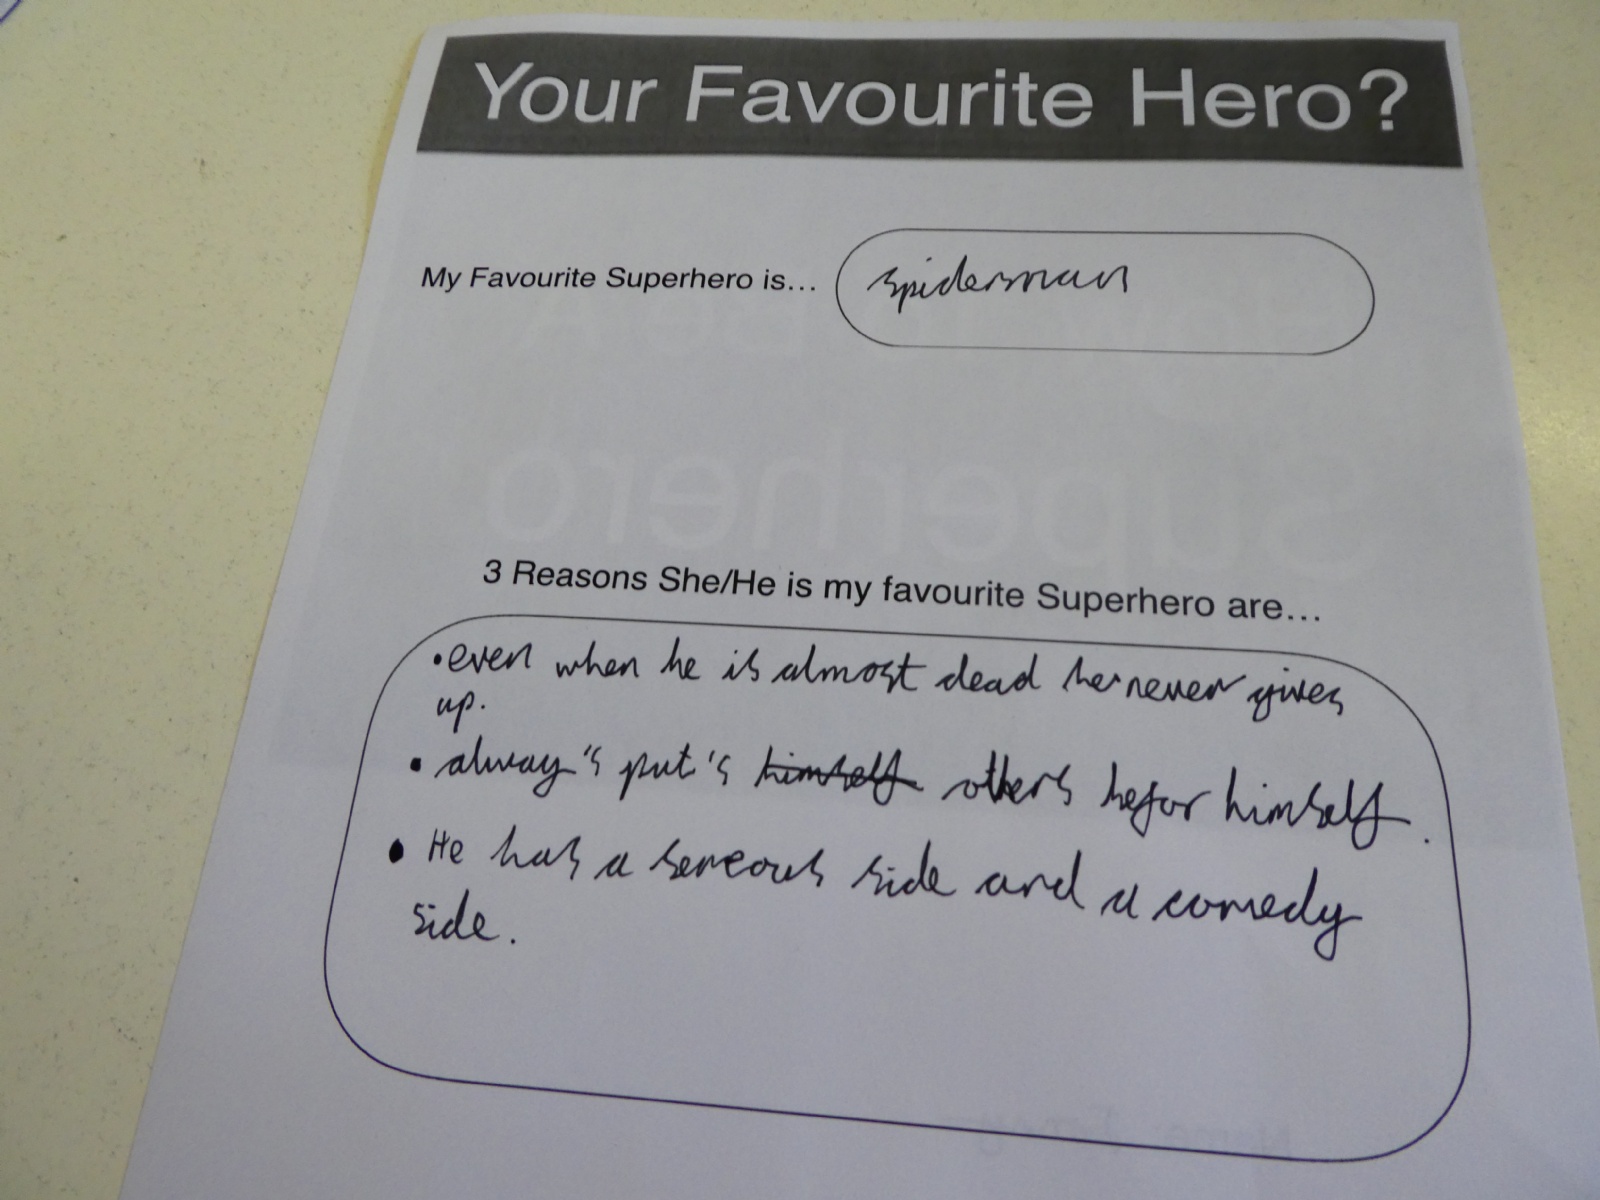 Your Favourite Hero?
My Favourite Superhero is...
spiderman
3 Reasons She/He is my favourite Superhero are...
•even when he is almost dead he never gives
up.
• alway's put's himself others befor himself.
• He has a sereous side and a comedy
side.